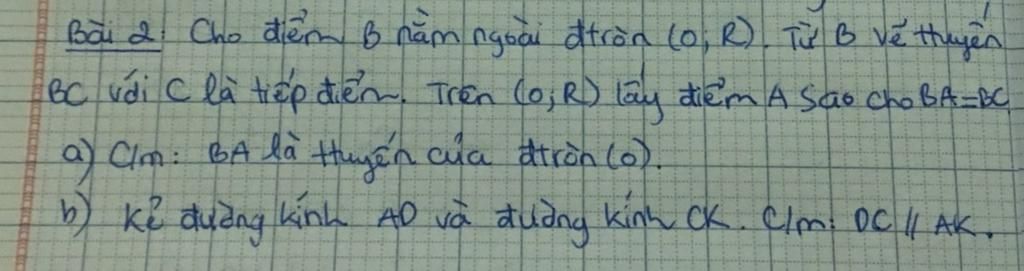 Bài 2: Cho điểm B nằm ngoài đtròn (O, R). Từ B vẽ thuyến
BC với C là tiếp điểm. Trên (O; R) lấy điểm A sao cho BA = BC
a) C/m: BA là thuyến của đtròn (O).
b) Kẻ đường kính AD và đường kính CK. C/m: DC // AK.